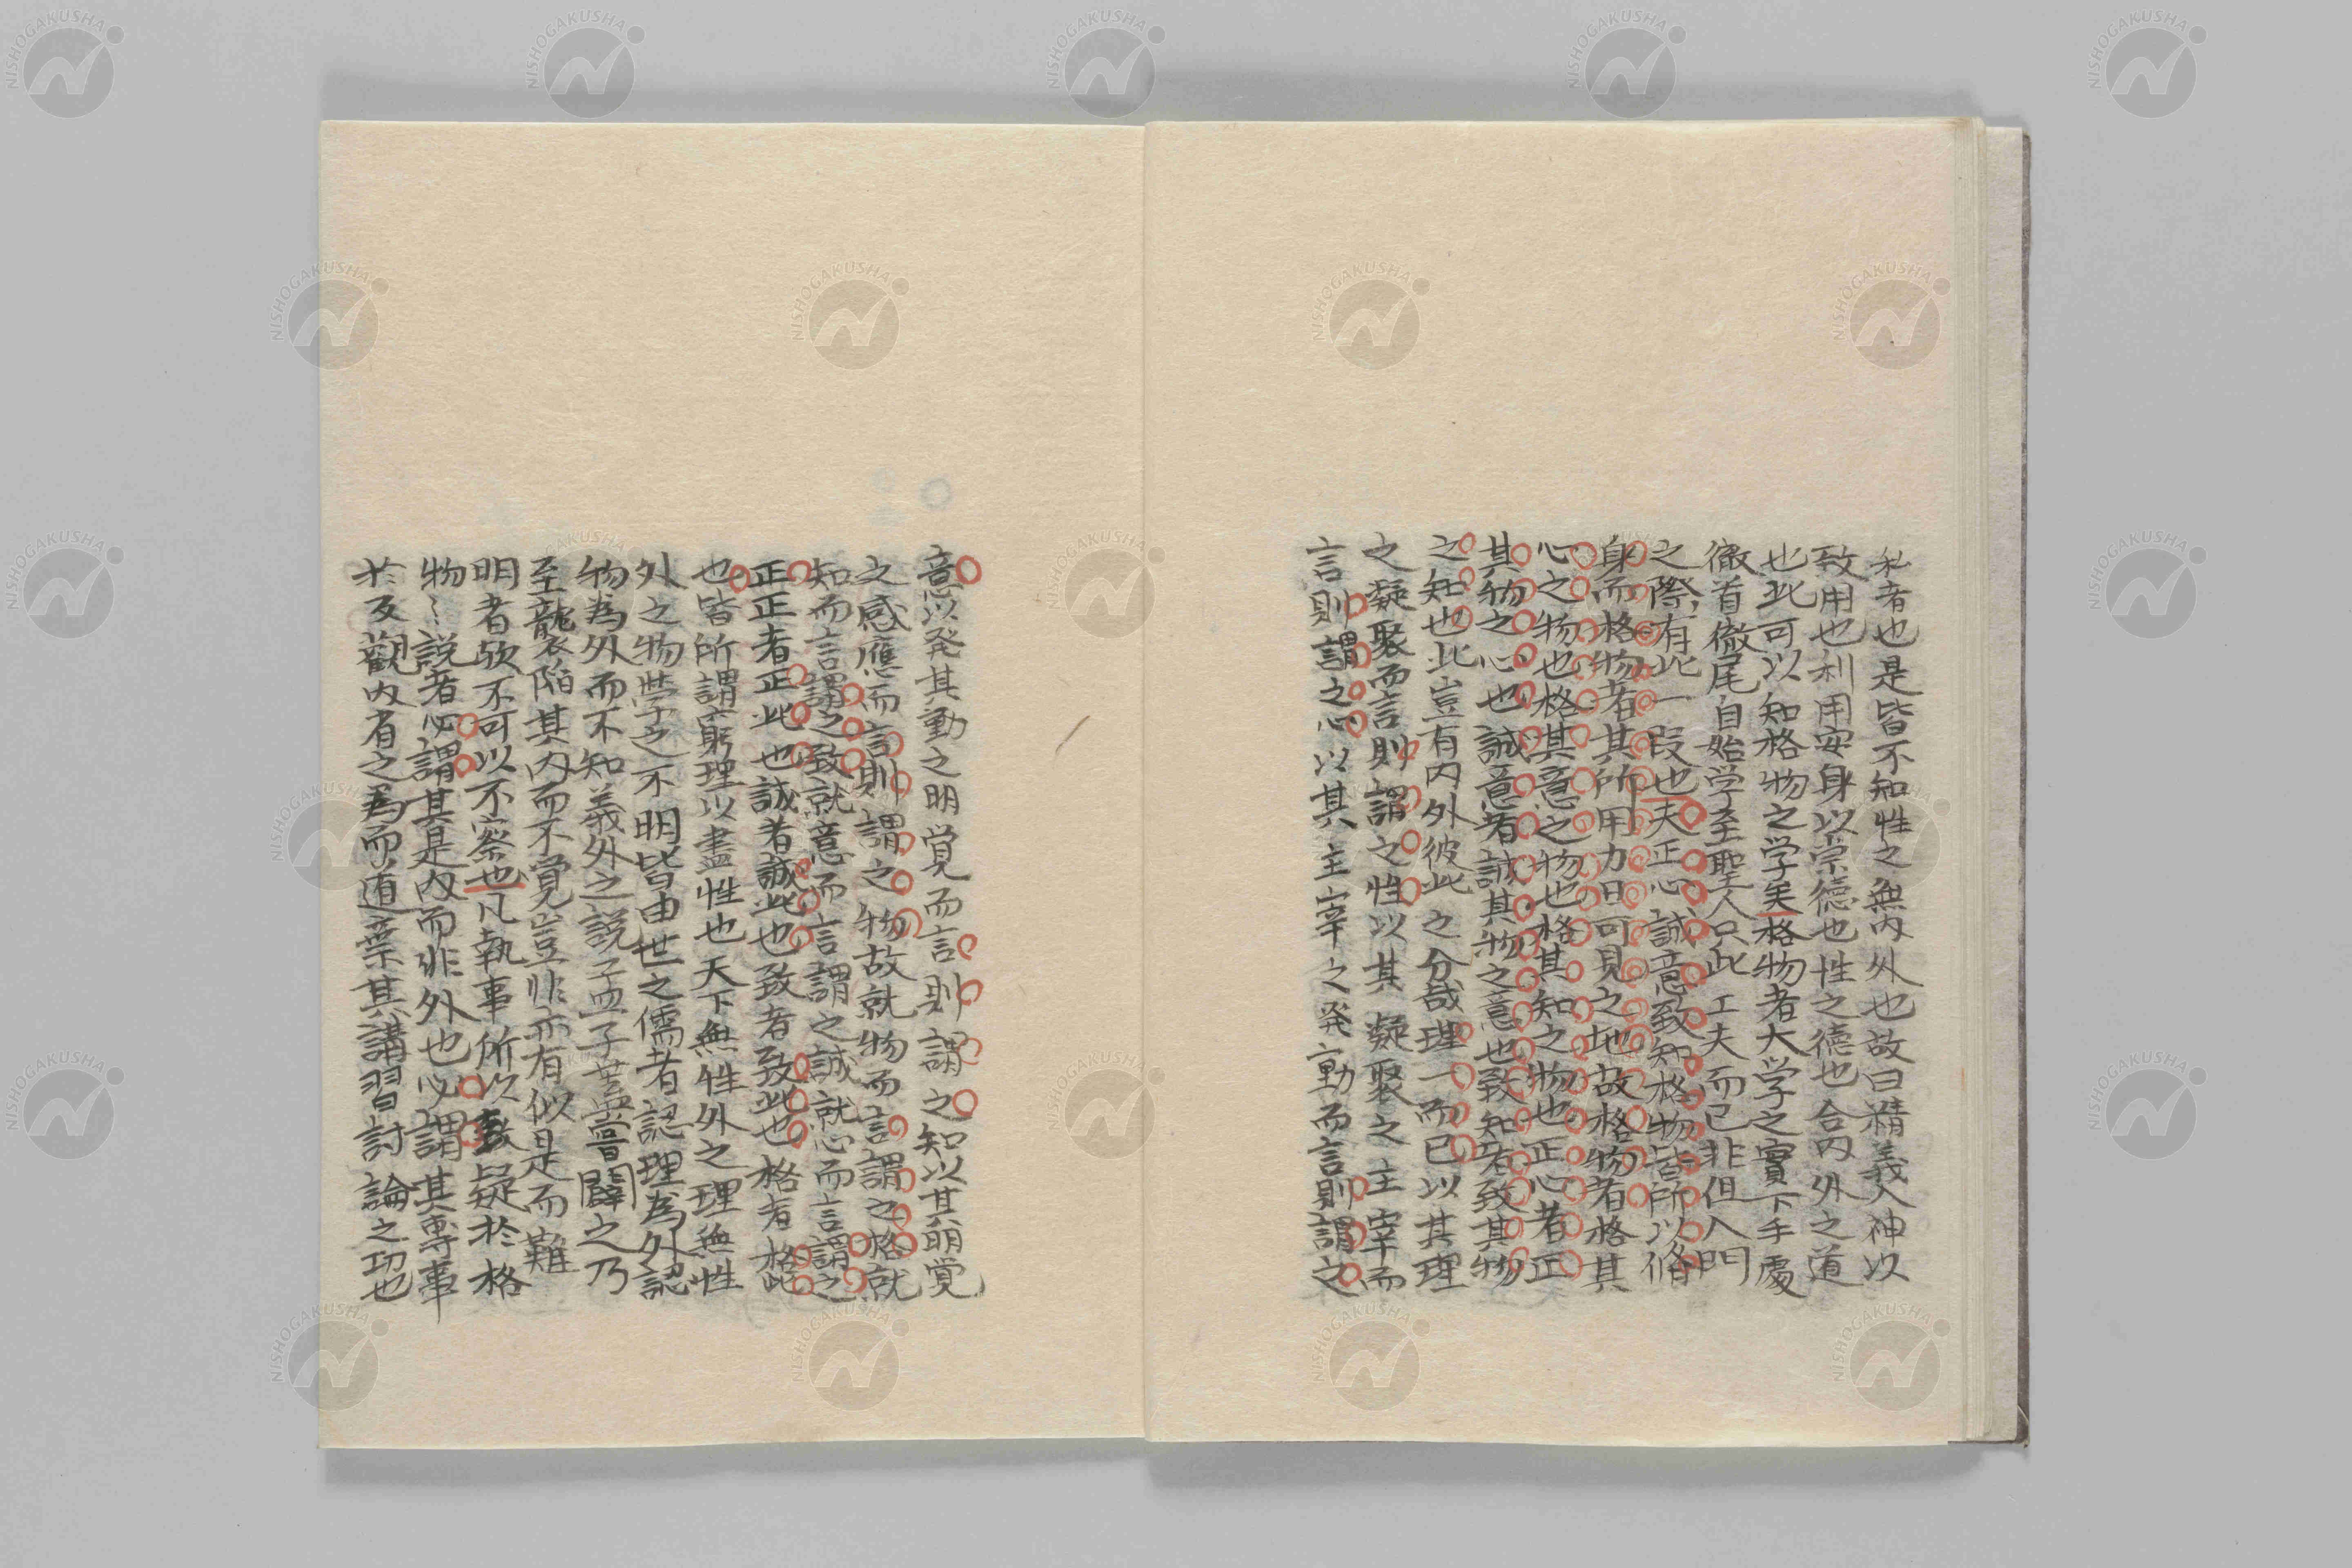 私者也是皆不知性之無内外也故曰精義入神以
致用也利用安身以崇徳也性之徳也合内外之道
也此可以知格物之学矣格物者大学之實下手處
徹首徹尾自始学至聖人只此工夫而已非但入門
之際有此一段也夫正心誠意致知格物皆所以脩
身而格物者其所用力日可見之地故格物者格其
心之物也格其意之物也格其知之物也正心者正
其物之心也誠意者誠其物之意也致知者致其物
之知也此豈有内外彼此之分哉理一而已以其理
之凝聚而言則謂之性以其凝聚之主宰而
言則謂之心以其主宰之発動而言則謂之
意以発其動之明覚而言則謂之知以其明覚
之感應而言則謂之物故就物而言謂之格就
知而言謂之致就意而言謂之誠就心而言謂之
正正者正此也誠者誠此也致者致此也格者格此
也皆所謂窮理以盡性也天下無性外之理無性
外之物学之不明皆由世之儒者認理為外認
物為外而不知義外之説孟子蓋嘗闢之乃
至襲陷其内而不覚豈非亦有似是而難
明者歟不可以不察也凡執事所以致疑於格
物〻説者必謂其是内而非外也必謂其専事
於反観内省之為而遺棄其講習討論之功也
NISHOGAKUSHA